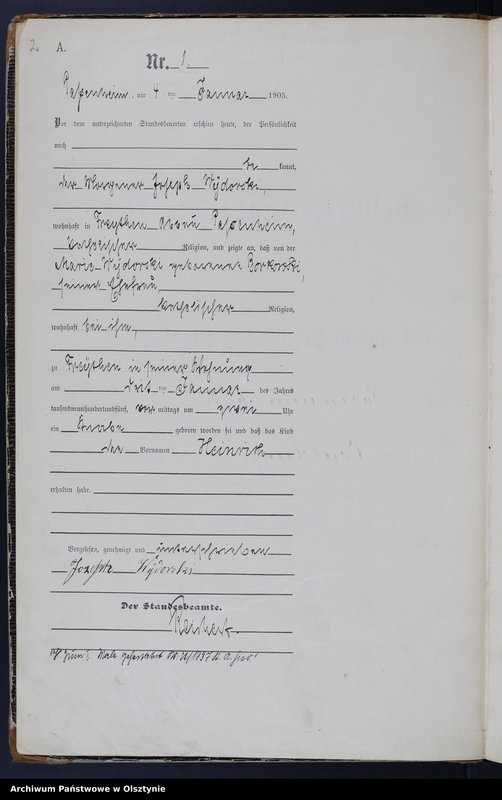 2
A.
Nr. 1.
Passenheim, am 4 ten Januar 1905.
Vor dem unterzeichneten Standesbeamten erschien heute, der Persönlichkeit
nach
be kannt,
der Joseph Wÿdorski,
wohnhaft in Freÿthen Abbau Passenheim,
katholischer Religion, und zeigte an, daß von der
Marie Wÿdorski geborenen Borkowski,
seiner Ehefrau,
katholischer Religion,
wohnhaft bei ihm,
zu Freÿthen in seiner Wohnung
am drei ten Januar des Jahres
tausendneunhundertundfünf, vor mittags um zwei Uhr
ein Knabe geboren worden sei und daß das Kind
den Vornamen Heinrich
erhalten habe.
Vorgelesen, genehmigt und unterschrieben
Joseph Wÿdorski
Der Standesbeamte.
Reichert.
1. Male geheiratet Nr.
Archiwum Państwowe w Olsztynie